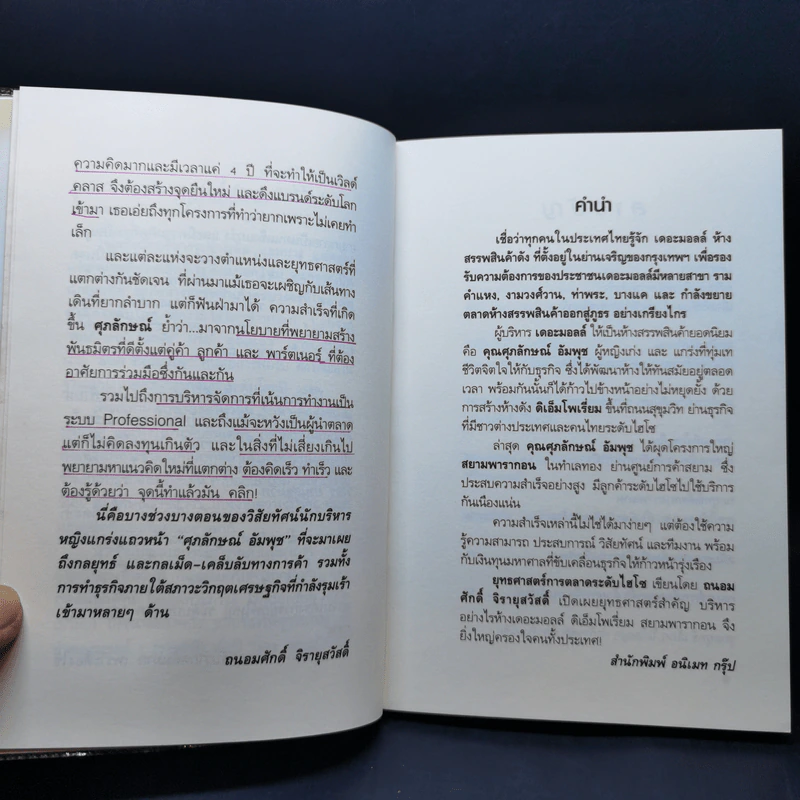 ความคิดมากและมีเวลาแค่ 4 ปี ที่จะทำให้เป็นเวิลด์
คลาส จึงต้องสร้างจุดยืนใหม่ และดึงแบรนด์ระดับโลก
เข้ามา เธอเอ่ยถึงทุกโครงการที่ทำว่ายากเพราะไม่เคยทำ
เล็ก
และแต่ละแห่งจะวางตำแหน่งและยุทธศาสตร์ที่
แตกต่างกันชัดเจน ที่ผ่านมาแม้เธอจะเผชิญกับเส้นทาง
เดินที่ยากลำบาก แต่ก็ฟันฝ่ามาได้ ความสำเร็จที่เกิด
ขึ้น ศุภลักษณ์ ย้ำว่า...มาจากนโยบายที่พยายามสร้าง
พันธมิตรที่ดีตั้งแต่คู่ค้า ลูกค้า และ พาร์ตเนอร์ ที่ต้อง
อาศัยการร่วมมือซึ่งกันและกัน
รวมไปถึงการบริหารจัดการที่เน้นการทำงานเป็น
ระบบ Professional และถึงแม้จะหวังเป็นผู้นำตลาด
แต่ก็ไม่คิดลงทุนเกินตัว และในสิ่งที่ไม่เสี่ยงเกินไป
พยายามหาแนวคิดใหม่ที่แตกต่าง ต้องคิดเร็ว ทำเร็ว และ
ต้องรู้ด้วยว่า จุดนี้ทำแล้วมัน คลิก!
นี่คือบางช่วงบางตอนของวิสัยทัศน์นักบริหาร
หญิงแกร่งแถวหน้า “ศุภลักษณ์ อัมพุช” ที่จะมาเผย
ถึงกลยุทธ์ และกลเม็ด-เคล็บลับทางการค้า รวมทั้ง
การทำธุรกิจภายใต้สภาวะวิกฤตเศรษฐกิจที่กำลังรุมเร้า
เข้ามาหลายๆ ด้าน
ถนอมศักดิ์ จิรายุสวัสดิ์
คำนำ
เชื่อว่าทุกคนในประเทศไทยรู้จัก เดอะมอลล์ ห้าง
สรรพสินค้าดัง ที่ตั้งอยู่ในย่านเจริญของกรุงเทพฯ เพื่อรอง
รับความต้องการของประชาชนเดอะมอลล์มีหลายสาขา ราม
คำแหง, งามวงศ์วาน, ท่าพระ, บางแค และ กำลังขยาย
ตลาดห้างสรรพสินค้าออกสู่ภูธร อย่างเกรียงไกร
ผู้บริหาร เดอะมอลล์ ให้เป็นห้างสรรพสินค้ายอดนิยม
คือ คุณศุภลักษณ์ อัมพุช ผู้หญิงเก่ง และ แกร่งที่ทุ่มเท
ชีวิตจิตใจให้กับธุรกิจ ซึ่งได้พัฒนาห้างให้ทันสมัยอยู่ตลอด
เวลา พร้อมกันนั้นก็ได้ก้าวไปข้างหน้าอย่างไม่หยุดยั้ง ด้วย
การสร้างห้างดัง ดิเอ็มโพเรี่ยม ขึ้นที่ถนนสุขุมวิท ย่านธุรกิจ
ที่มีชาวต่างประเทศและคนไทยระดับไฮโซ
ล่าสุด คุณศุภลักษณ์ อัมพุช ได้ผุดโครงการใหญ่
สยามพารากอน ในทำเลทอง ย่านศูนย์การค้าสยาม ซึ่ง
ประสบความสำเร็จอย่างสูง มีลูกค้าระดับไฮโซไปใช้บริการ
กันเนืองแน่น
ความสำเร็จเหล่านี้ไม่ใช่ได้มาง่ายๆ แต่ต้องใช้ความ
รู้ความสามารถ ประสบการณ์ วิสัยทัศน์ และทีมงาน พร้อม
กับเงินทุนมหาศาลที่ขับเคลื่อนธุรกิจให้ก้าวหน้ารุ่งเรือง
ยุทธศาสตร์การตลาดระดับไฮโซ เขียนโดย ถนอม
ศักดิ์ จิรายุสวัสดิ์ เปิดเผยยุทธศาสตร์สำคัญ บริหาร
อย่างไรห้างเดอะมอลล์ ดิเอ็มโพเรี่ยม สยามพารากอน จึง
ยิ่งใหญ่ครองใจคนทั้งประเทศ!
สำนักพิมพ์ อนิเมท กรุ๊ป